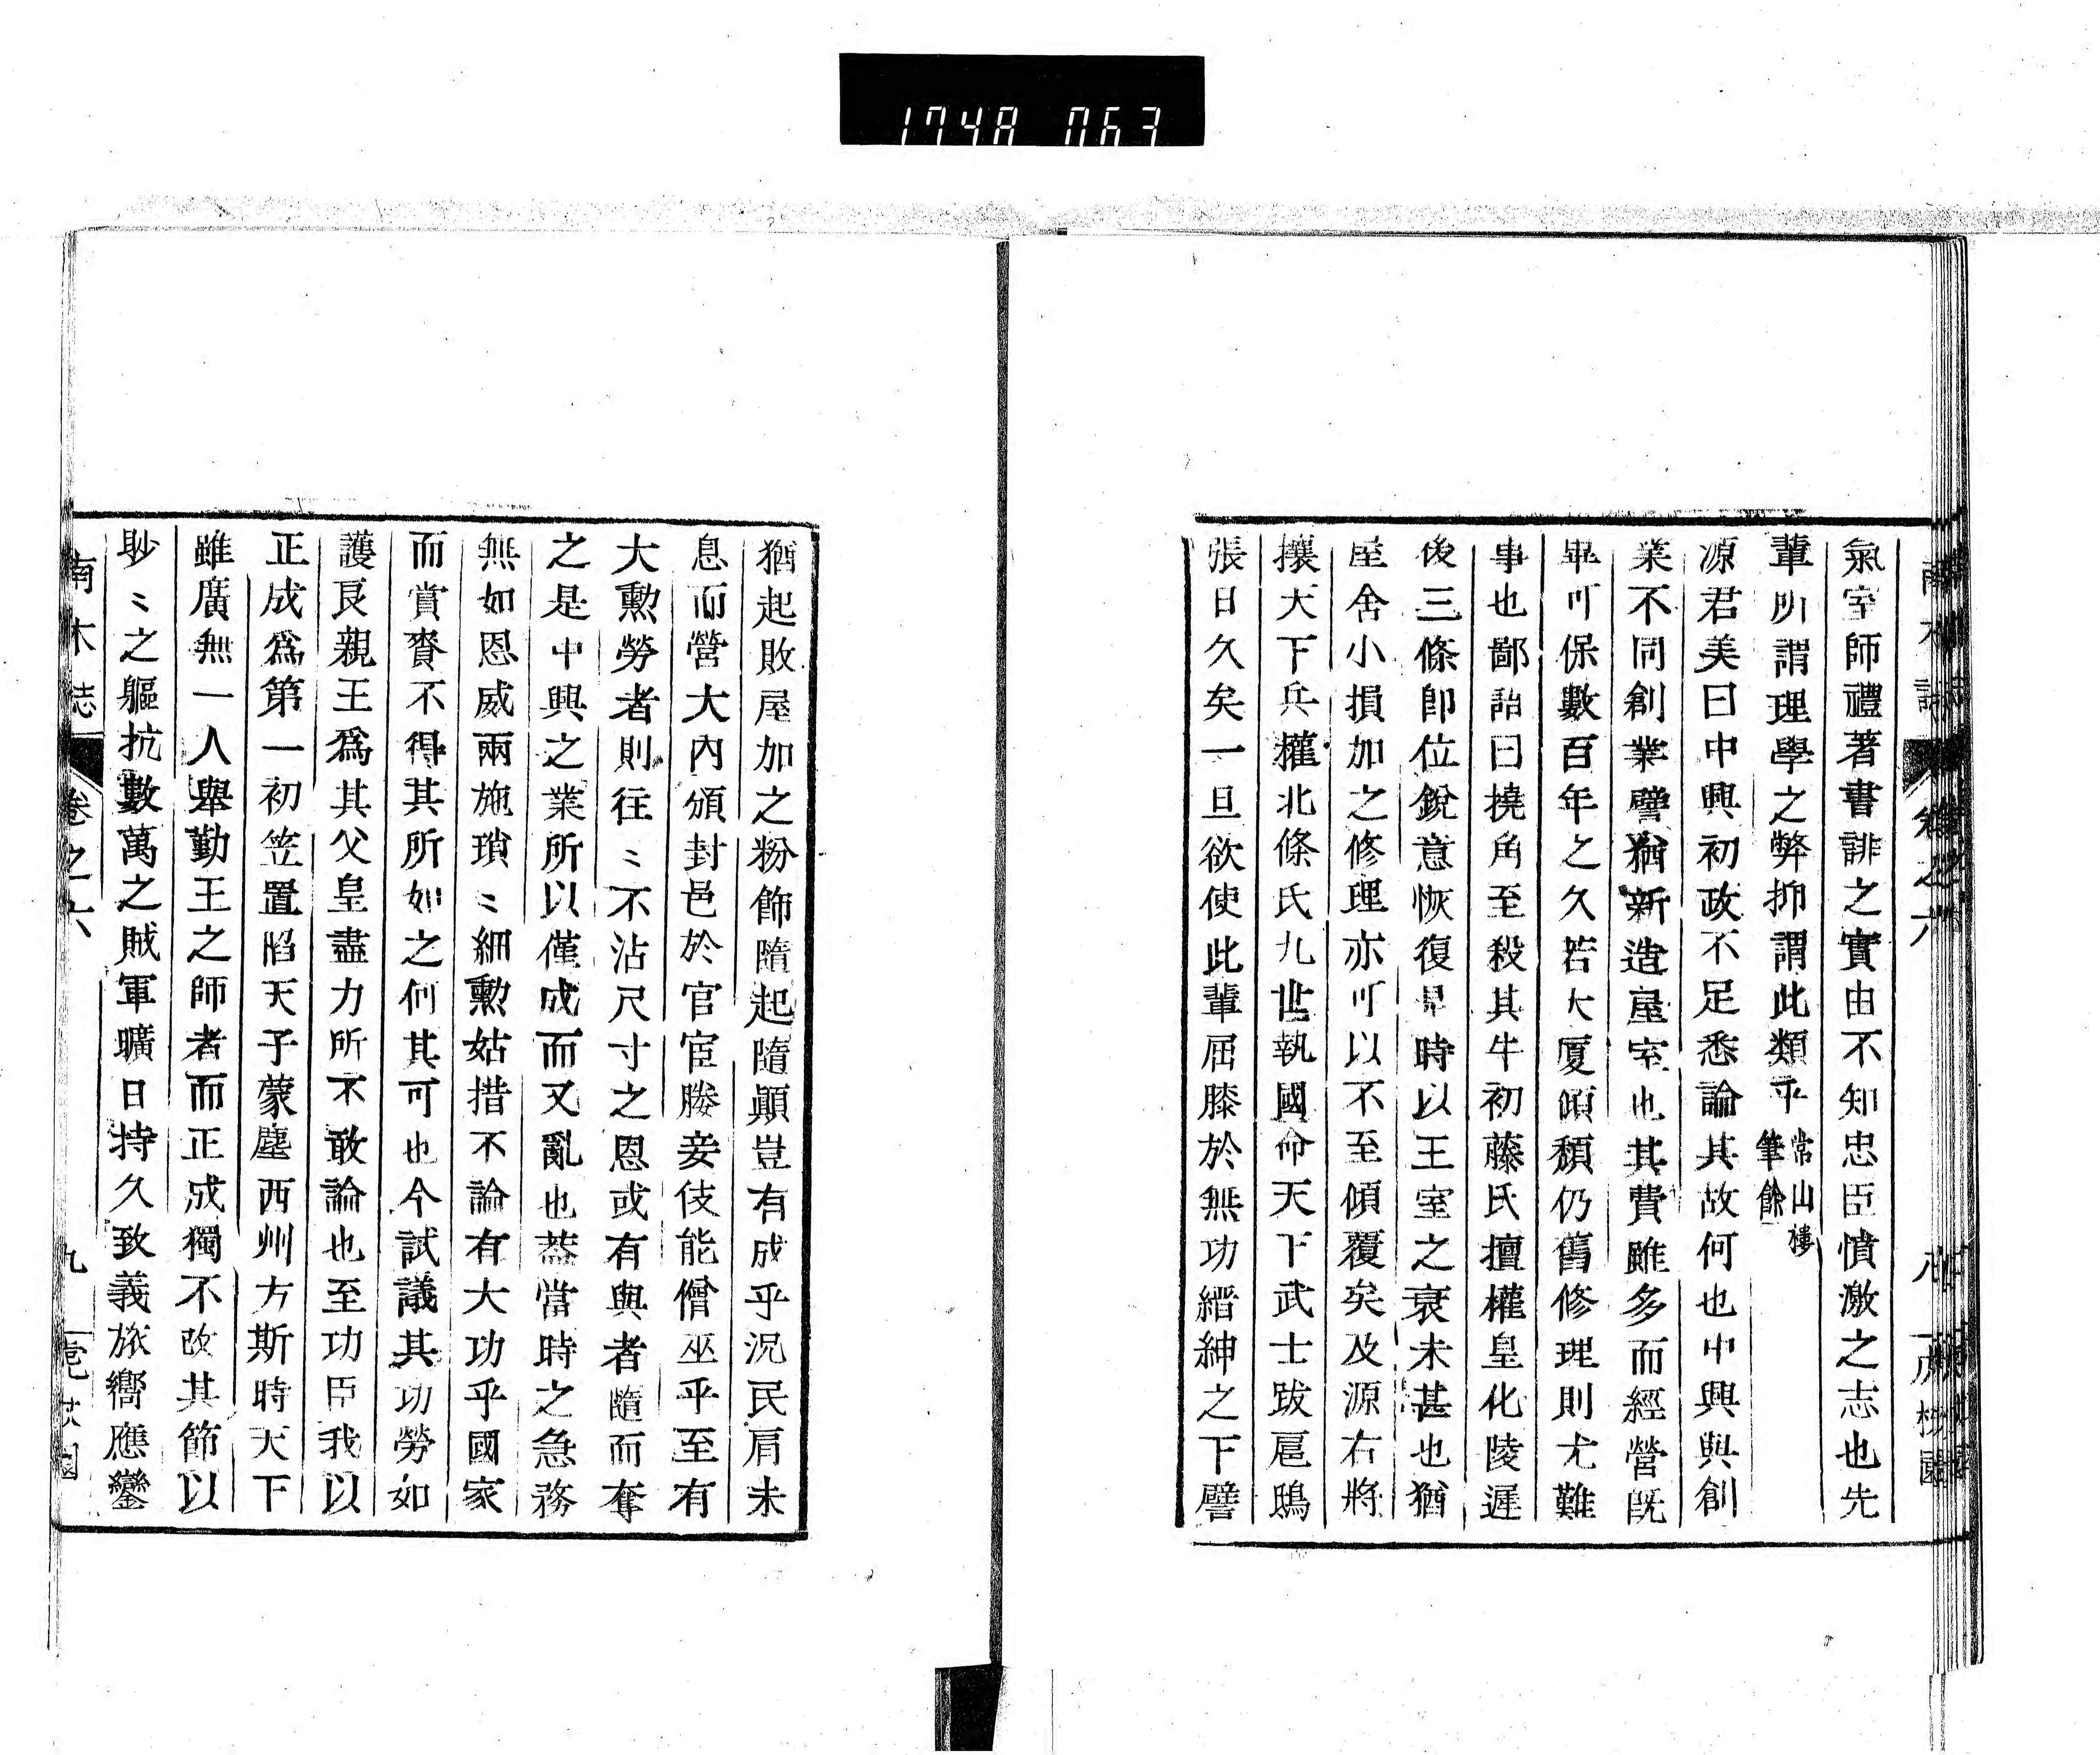 1748 063
南木誌 卷之六 八
氣室師禮著書誹之實由不知忠臣憤激之志也先
輩所謂理學之弊抑謂此類乎常山樓筆餘
源君美曰中興初政不足悉論其故何也中興與創
業不同創業譬猶新造屋室也其費雖多而經營既
畢可保數百年之久若大厦傾頽仍舊修理則尤難
事也鄙諺曰撓角至殺其牛初藤氏擅權皇化陵遲
後三條即位銳意恢復是時以王室之衰未甚也猶
屋舍小損加之修理亦可以不至傾覆矣及源右將
攘天下兵權北條氏九世執國命天下武士跋扈鴟
張日久矣一旦欲使此輩屈膝於無功縉紳之下譬
猶起敗屋加之粉飾隨起隨顚豈有成乎況民肩未
息而營大內頒封邑於官宦媵妾伎能僧巫乎至有
大勲勞者則往〻不沾尺寸之恩或有與者隨而奪
之是中興之業所以僅成而又亂也葢當時之急務
無如恩威兩施瑣〻細勲姑措不論有大功乎國家
而賞賚不得其所如之何其可也今試議其功勞如
護良親王爲其父皇盡力所不敢論也至功臣我以
正成爲第一初笠置陷天子蒙塵西州方斯時天下
雖廣無一人舉勤王之師者而正成獨不改其節以
眇〻之軀抗數萬之賊軍曠日持久致義旅嚮應鑾
南木誌 卷之六 九